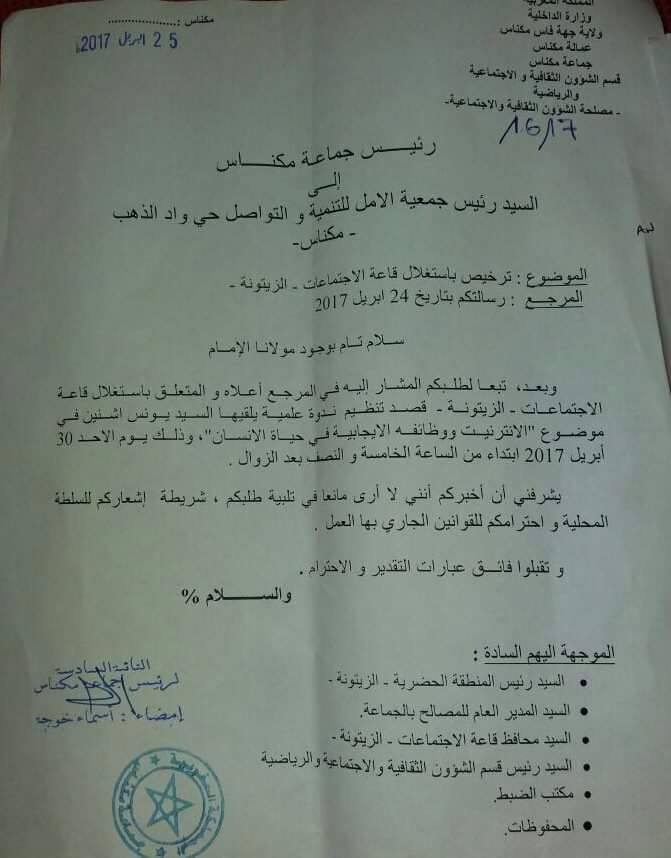 المملكة المغربية
وزارة الداخلية
ولاية جهة فاس مكناس
عمالة مكناس
جماعة مكناس
قسم الشؤون الثقافية و الاجتماعية
والرياضية
- مصلحة الشؤون الثقافية والاجتماعية-
1617
مكناس :....................
25 ابريل 2017
رئيس جماعة مكناس
إلى
السيد رئيس جمعية الامل للتنمية و التواصل حي واد الذهب
- مكناس-
الموضوع : ترخيص باستغلال قاعة الاجتماعات - الزيتونة -
المرجع : رسالتكم بتاريخ 24 ابريل 2017
سلام تام بوجود مولانا الإمام
وبعد، تبعا لطلبكم المشار إليه في المرجع أعلاه و المتعلق باستغلال قاعة
الاجتماعات - الزيتونة - قصد تنظيم ندوة علمية يلقيها السيد يونس اشنين في
موضوع "الانترنيت ووظائفه الايجابية في حياة الانسان"، وذلك يوم الاحد 30
أبريل 2017 ابتداء من الساعة الخامسة و النصف بعد الزوال .
يشرفني أن أخبركم أنني لا أرى مانعا في تلبية طلبكم ، شريطة إشعاركم للسلطة
المحلية و احترامكم للقوانين الجاري بها العمل .
و تقبلوا فائق عبارات التقدير و الاحترام .
والسلام %
الموجهة اليهم السادة :
• السيد رئيس المنطقة الحضرية - الزيتونة -
• السيد المدير العام للمصالح بالجماعة.
• السيد محافظ قاعة الاجتماعات - الزيتونة -
• السيد رئيس قسم الشؤون الثقافية والاجتماعية والرياضية
• مكتب الضبط.
• المحفوظات.
النائبة السادسة
لرئيس جماعة مكناس
إمضاء : اسماء خوجة
المملكة المغربية